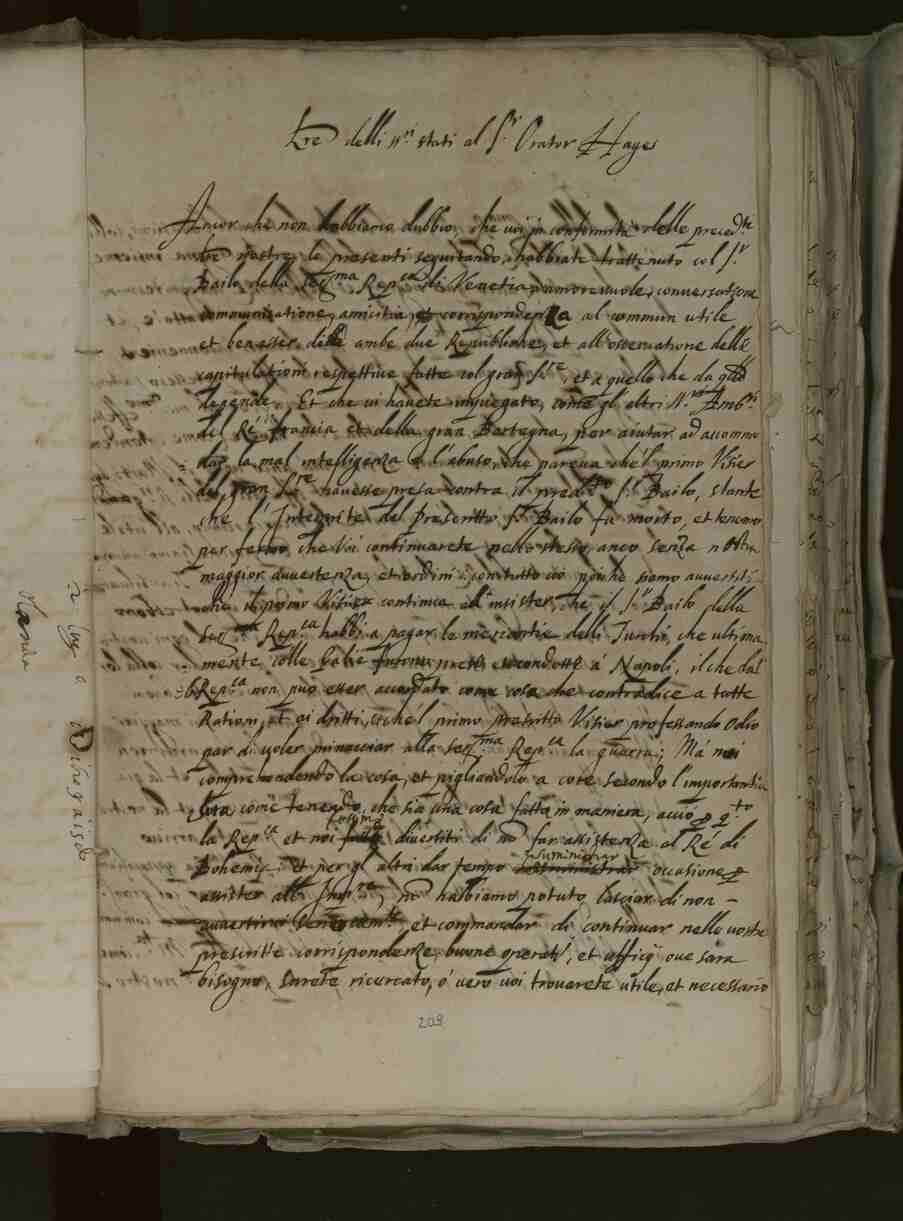 Lre delli ss.ri stati al S.r Orator Hayes
Ancor che non habbiamo dubbio, che voi in conformità delle preced.te
lre nostre, le presenti seguitando, habbiate trattenuto col S.r
Bailo della Ser.ma Rep.ca di Venetia, amorevuole, conversatione
communicatione, amicitia, et corrispondenza al commun utile
et ben esser delle ambe due Republiche, et all'osservatione delle
capitulationi respettive fatte col gran S.re, et a quello che da
depende. Et che vi havete impiegato, con gl'altri Ill.ri Amb.ri
del Ré di Francia et della gran Bertegna, per aiutar ad accommo
dar la mal intelligenza e l'abuso, che pareva ch'el primo Visier
del gran S.re havesse presa contra il pred.to S.r Bailo, stante
che l'Interprete del prescritto S.r Bailo fu morto, et tenemo
per fermo che Voi continuarete nello stesso, anco senza nostra
maggior avvertenza, et ordini; con tutto ciò poiche siamo avvertiti
che il primo Visier continua ad insister, che il S.r Bailo della
Ser.ma Rep.ca habbi a pagar le mercantie delli Turchi, che ultima
mente colle Galie furono prese, et condotte á Napoli, il che dal
Rep.ca non può esser accordato come cosa che contradice a tutte
Rationi, et ai dritti, et ch'el primo prescritto Visier professando odio
par di voler minacciar alla ser.ma Rep.ca la guerra; Má noi
comprehendendo la cosa, et pigliandola a core secondo l'importantia
sua come tenendo, che sia una cosa fatta in maniera, acciò p q.to
la Rep.ca et noi fossimo divertiti di non far assistenza al Ré di
Bohemia, et per gl'altri dar tempo summinstrar occasione p
assister all' Imp.re, non habbiamo potuto lasciar di non -
avvertirvi, et commandar di continuar nelle vostre
prescritte corrispondenze, buone opere, et ufficij ove sara
bisogno, sarete ricercato, ó vero voi trovarete utile, et necessario
203